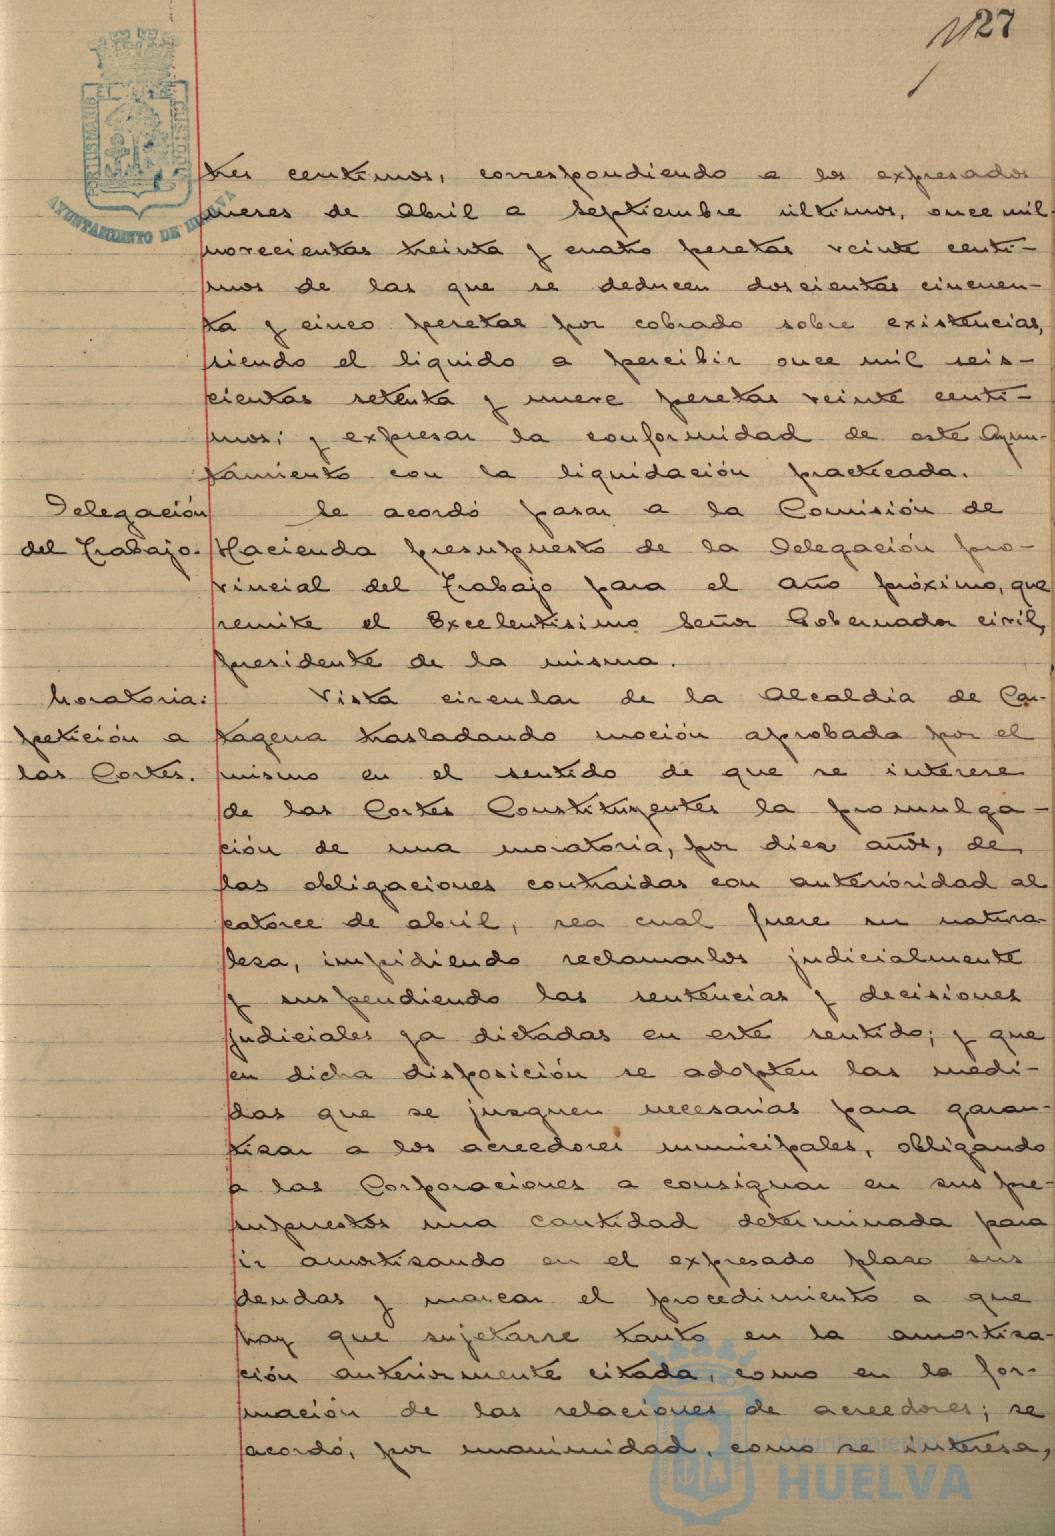 127
tres centimos, correspondiendo a los expresados
meses de Abril a Septiembre últimos, once mil
novecientas treinta y cuatro pesetas veinte centi-
mos de las que se deducen doscientas cincuen-
ta y cinco pesetas por cobrado sobre existencias,
siendo el liquido a percibir once mil seis-
cientas setenta y nueve pesetas veinte centi-
mos; y expresar la conformidad de este Ayun-
tamiento con la liquidación practicada.
Delegación
del Trabajo.
Se acordó pasar a la Comisión de
Hacienda presupuesto de la Delegación pro-
vincial del Trabajo para el año próximo, que
remite el Excelentísimo Señor Gobernador civil,
presidente de la misma.
Moratoria:
petición a
las Cortes.
Vista circular de la Alcaldía de Car-
tagena trasladando moción aprobada por el
mismo en el sentido de que se interese
de las Cortes Constituyentes la promulga-
ción de una moratoria, por diez años, de
las obligaciones contraidas con anterioridad al
catorce de abril, sea cual fuere su natura-
leza, impidiendo reclamarlos judicialmente
y suspendiendo las sentencias y decisiones
judiciales ya dictadas en este sentido; y que
en dicha disposición se adopten las medi-
das que se juzguen necesarias para garan-
tizar a los acreedores municipales, obligando
a las Corporaciones a consignar en sus pre-
supuestos una cantidad determinada para
ir amortizando en el expresado plazo sus
deudas y marcar el procedimiento a que
hay que sujetarse tanto en la amortiza-
ción anteriormente citada, como en la for-
mación de las relaciones de acreedores; se
acordó, por unanimidad, como se interesa,
AYUNTAMIENTO DE HUELVA
Ayuntamiento de
HUELVA